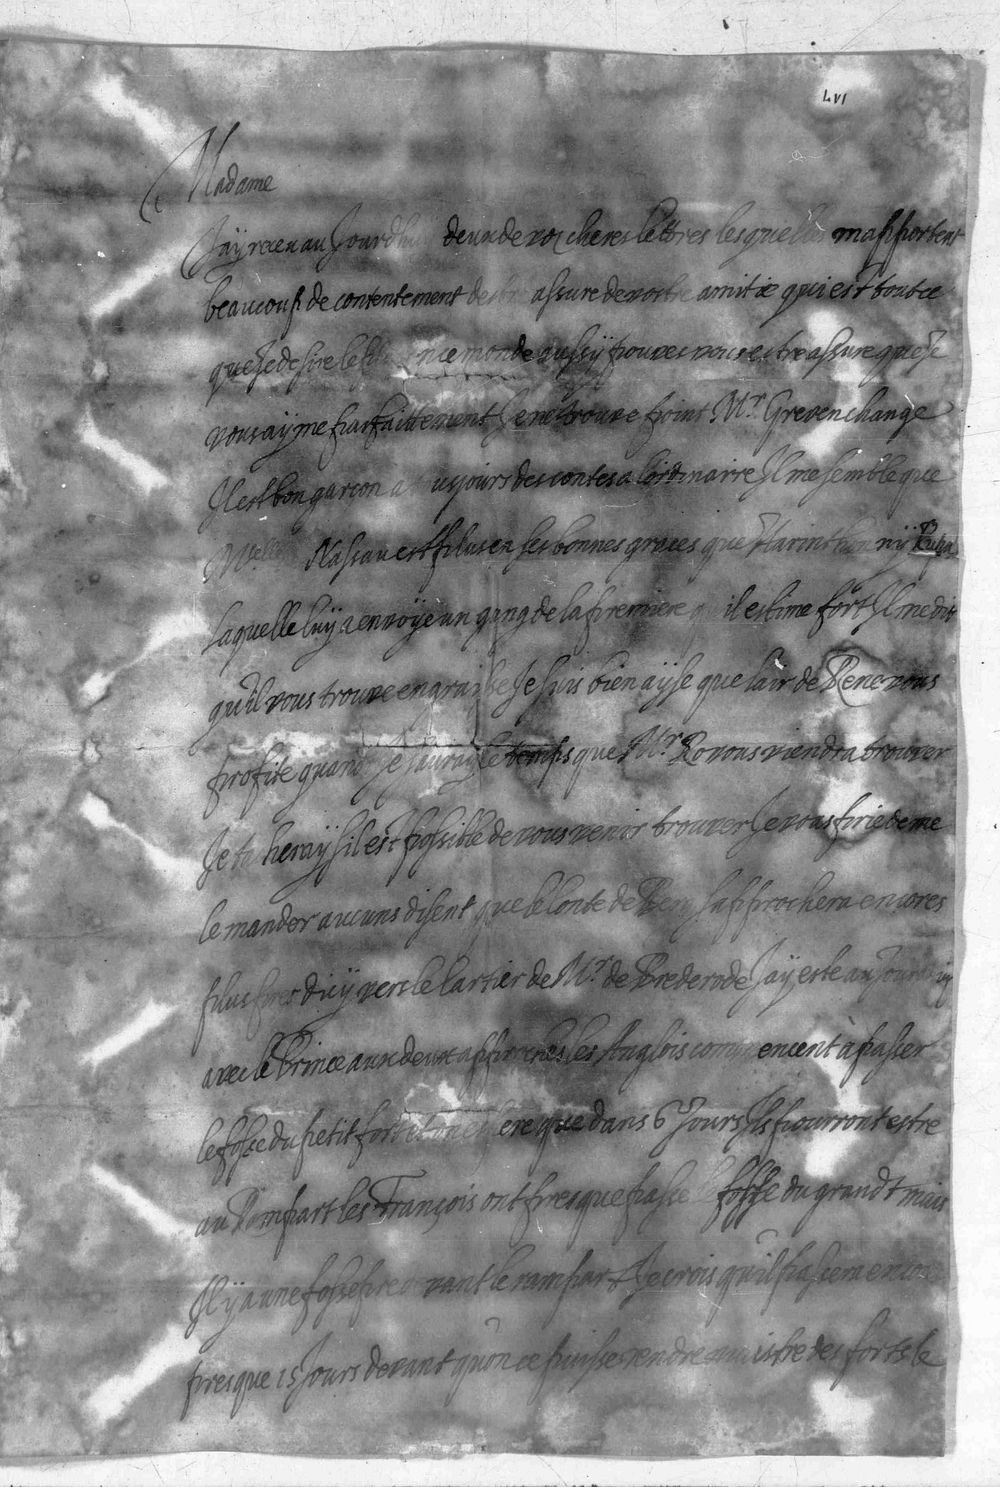 LVI
Madame
Jaÿ receu au Jourdhuÿ deux de voz cheres lettres lesquielles mapportent
beaucoup de contentement destre assure de vostre amitie qui est tout ce
que Je desire le plus ce monde aussÿ pouves vous estre assure que Je
vous aÿme parfaittement Je ne trouve point Mr Greven change
Il est bon garçon a tousjours des contes a lordinaire Il me semble que
Nassau est plus en ses bonnes graces que nÿ
laquelle luÿ a envoÿe un gang de la premiere quil estime fort Il me dit
quil vous trouve engraisse Je suis bien aÿse que lair de Rene vous
profite quand Je sauraÿ le temps que Mr Ro vous viendra trouver
Je tacheraÿ sil est possible de vous venir trouver Je vous prie de me
le mander aucuns disent que le Conte de Berg sapprochera encores
plus pres dicÿ vers le Cartier de Mr de Brederode Jaÿ este au Jourdhuÿ
avec le Prince aux deux approches les Anglois commencent à passer
le fosse du petit fort et on espere que dans 6 Jours Ils pourront estre
au Rompart les François ont presque passe le fosse du grandt mais
Il ÿ a une fosse devant le rampart Je crois quil passera encores
presque 15 Jours devant quon ce puisse rendre maistre des forts le